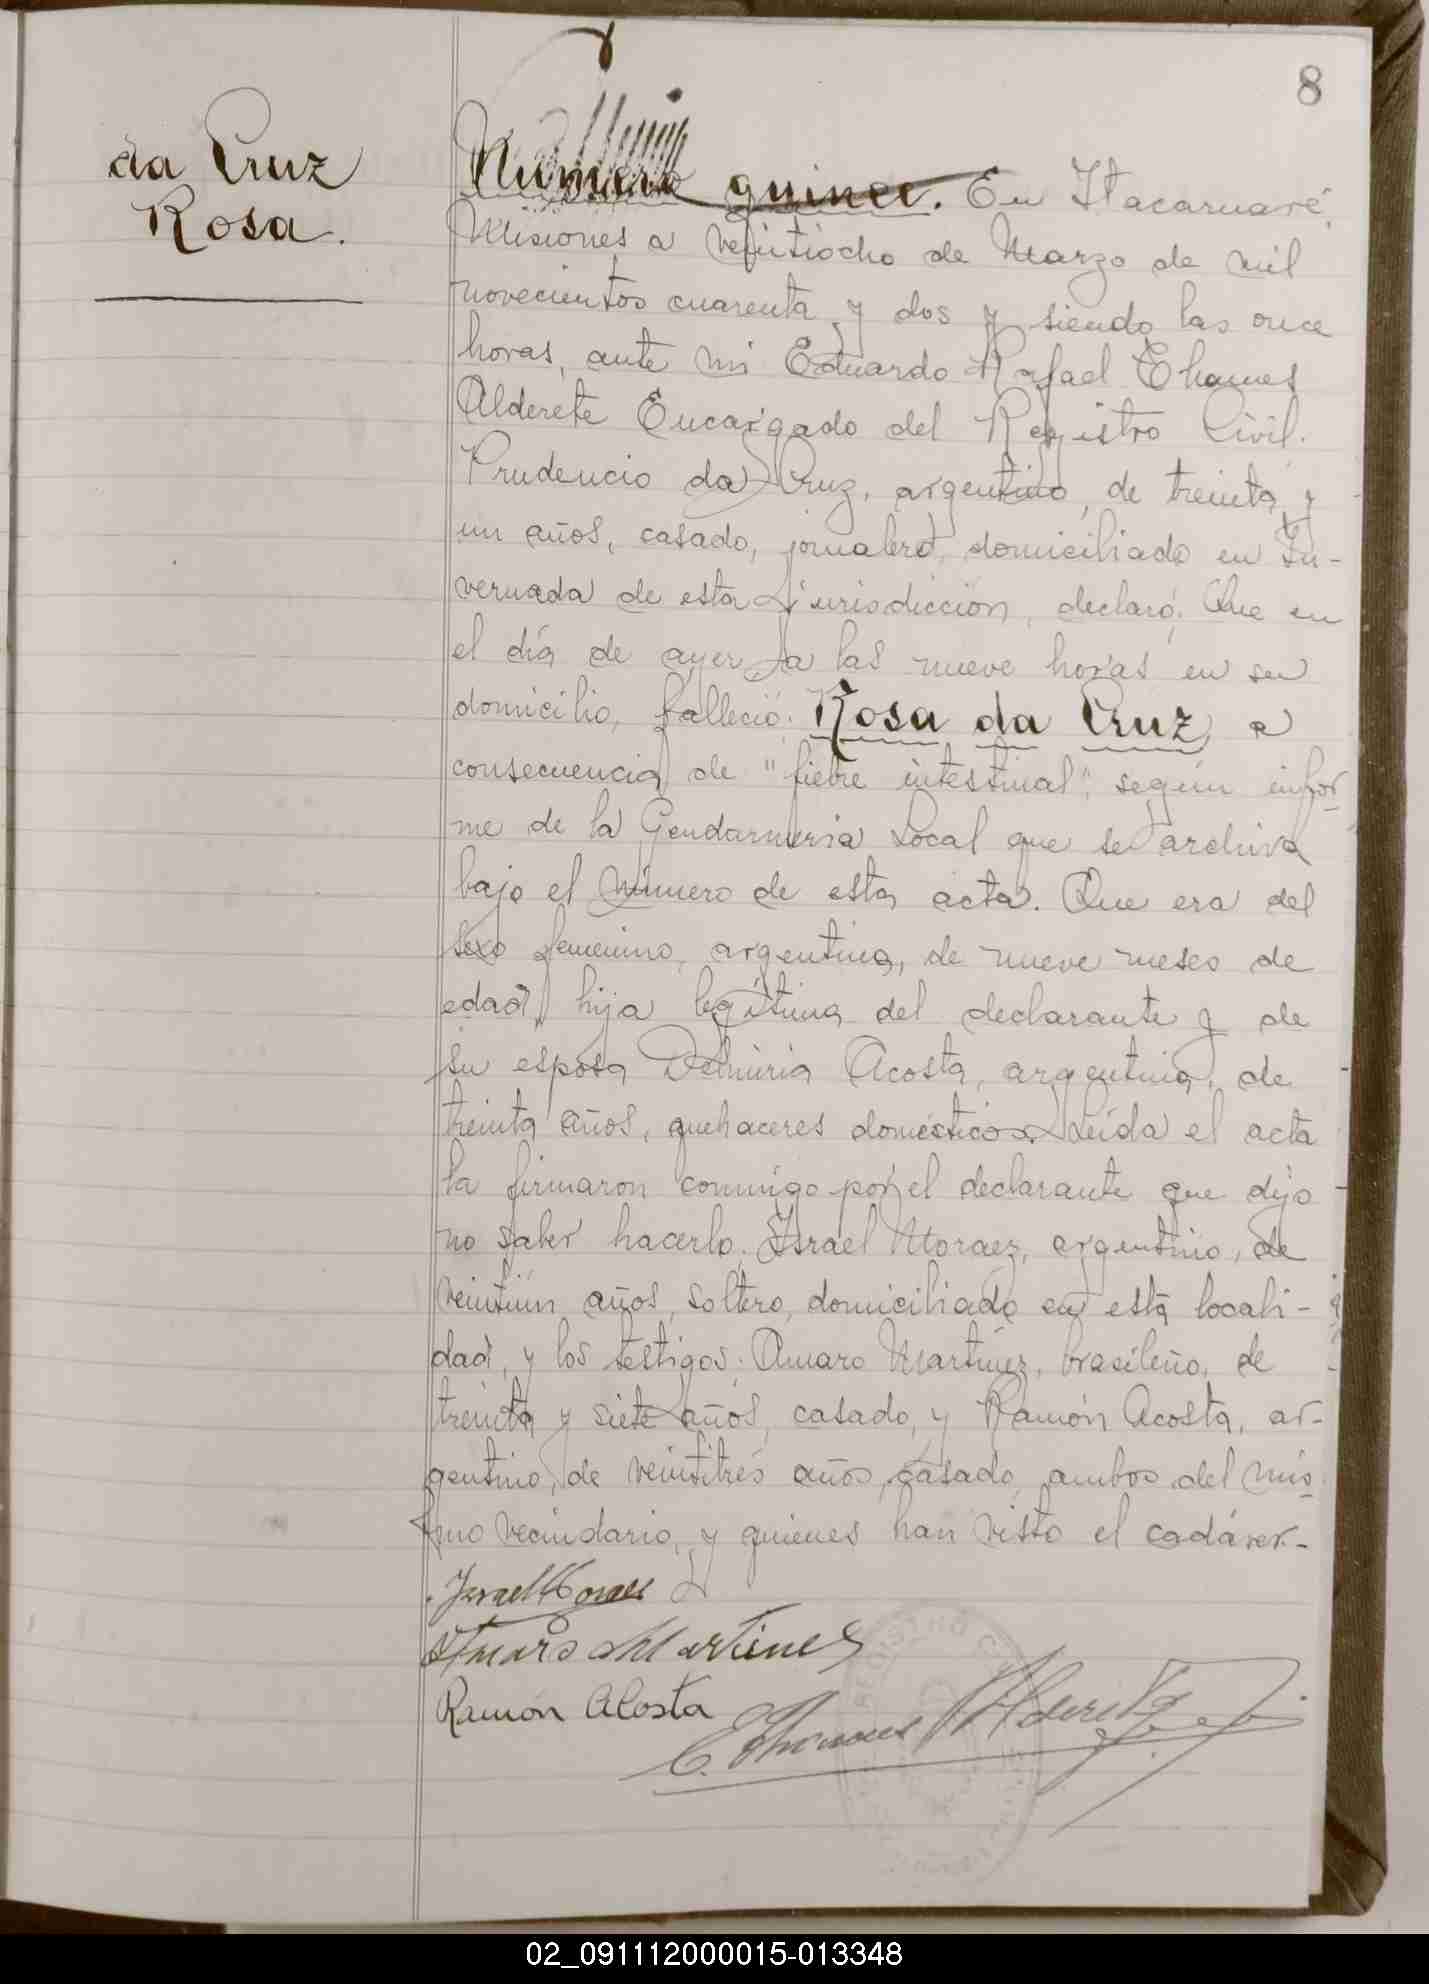 8
da Cruz
Rosa.
Número quince. En Itacaruaré,
Misiones a veintiocho de Marzo de mil
novecientos cuarenta y dos y siendo las once
horas, ante mi Eduardo Rafael Thames
Alderete Encargado del Registro Civil.
Prudencio da Cruz, argentino, de treinta y
un años, casado, jornalero, domiciliado en In-
vernada de esta jurisdicción, declaró: Que en
el día de ayer a las nueve horas en su
domicilio, falleció: Rosa da Cruz, a
consecuencia de "fiebre intestinal", según infor-
me de la Gendarmeria Local que se archiva
bajo el número de esta acta. Que era del
sexo femenino, argentina, de nueve meses de
edad, hija legítima del declarante y de
su esposa Delmiria Acosta, argentina, de
treinta años, quehaceres domésticos. Leída el acta
la firmaron conmigo por el declarante que dijo
no saber hacerlo, Israel Moraez, argentino, de
veintiún años, soltero, domiciliado en esta locali-
dad, y los testigos: Amaro Martínez, brasileño, de
treinta y siete años, casado, y Ramón Acosta, ar-
gentino, de veintitrés años, casado, ambos del mis-
mo vecindario, y quienes han visto el cadáver.-
Israel Moraes
Amaro Martines
Ramón Acosta
E. Thames Alderete
02_091112000015-013348